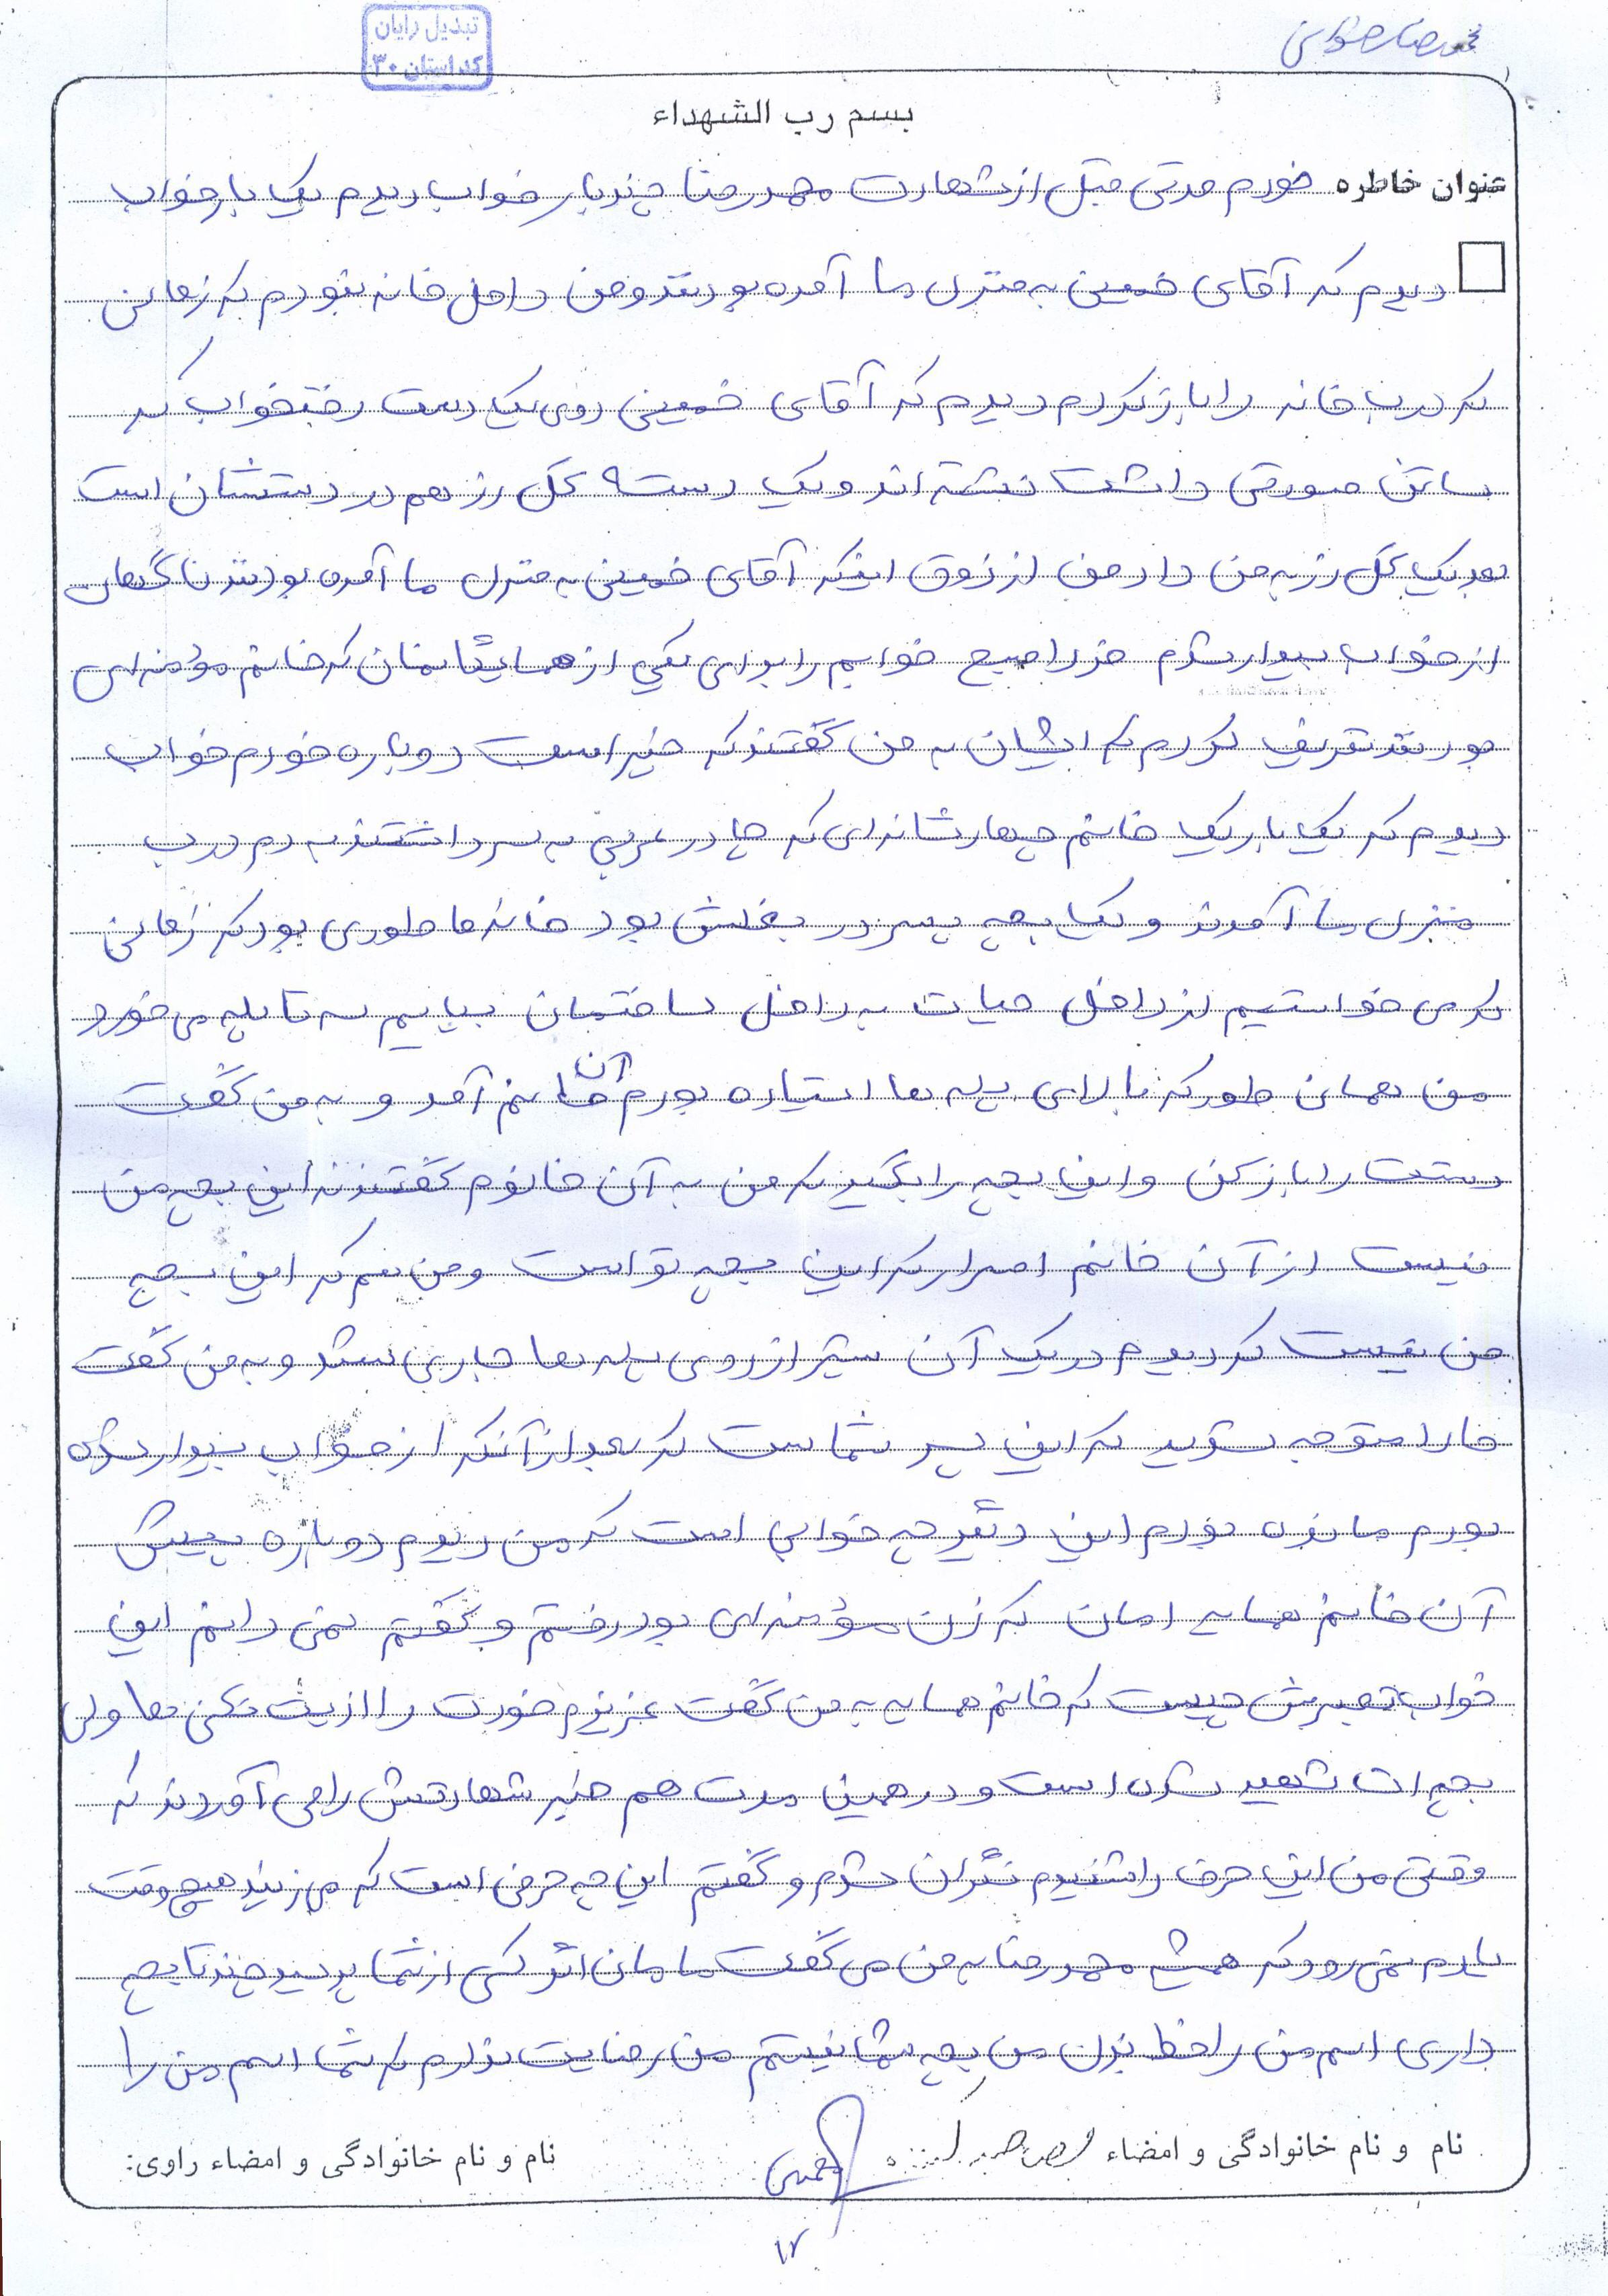 تبدیل رایان
کد استان ۳۰
بسم رب الشهداء
عنوان خاطره خودم مدتی قبل از شهادت محمدرضا چند بار خواب دیدم یک بار خواب
دیدم که آقای خمینی به منزل ما آمده بودند و من داخل خانه نبودم که زمانی
که درب خانه را باز کردم دیدم که آقای خمینی روی یک دست رختخواب که
ساتن صورتی داشت نشسته اند و یک دسته گل رز هم در دستشان است
بعد یک گل رز به من داد من از ذوق اینکه آقای خمینی به منزل ما آمده بودند ناگهان
از خواب بیدار شدم فردا صبح خوابم را برای یکی از همسایتانمان که خانم مؤمنه ای
بودند تعریف کردم که ایشان به من گفتند که خیر است دوباره خودم خواب
دیدم که یک بار یک خانم چهارشانه ای که چادر عربی به سر داشتند به دم درب
منزل ما آمدند و یک بچه پسر در بغلش بود خانه ما طوری بود که زمانی
که می خواستیم از داخل حیات به داخل ساختمان بیایم سه تا پله می خورد
من همان طور که بالای پله ها ایستاده بودم آن خانم آمد و به من گفت
دستت را باز کن و این بچه را بگیر که من به آن خانوم گفتند نه این بچه من
نیست از آن خانم اصرار که این بچه تو است و من هم که این بچه
من نیست که دیدم در یک آن شیر از روی پله ها جاری شد و به من گفت
حالا متوجه شدید که این پسر شماست که بعد از آنکه از خواب بیدار شده
بودم مانده بودم این دیگر چه خوابی است که من دیدم دوباره پیش
آن خانم همسایه امان که زن مؤمنه ای بود رفتم و گفتم نمی دانم این
خواب تعبیرش چیست که خانم همسایه به من گفت عزیزم خودت را ازیت نکنی ها ولی
بچه ات شهید شده است و در همین مدت هم خبر شهادتش را می آوردند که
وقتی من این حرف را شنیدم نگران شدم و گفتم این چه حرفی است که می زنید هیچ وقت
یادم نمی رود که همیشه محمدرضا به من می گفت مامان اگر کسی از شما پرسید چند تا بچه
داری اسم من را خط بزن من بچه شما نیستم من رضایت ندارم که شما اسم من را
نام و نام خانوادگی و امضاء
نام و نام خانوادگی و امضاء راوی:
۱۷